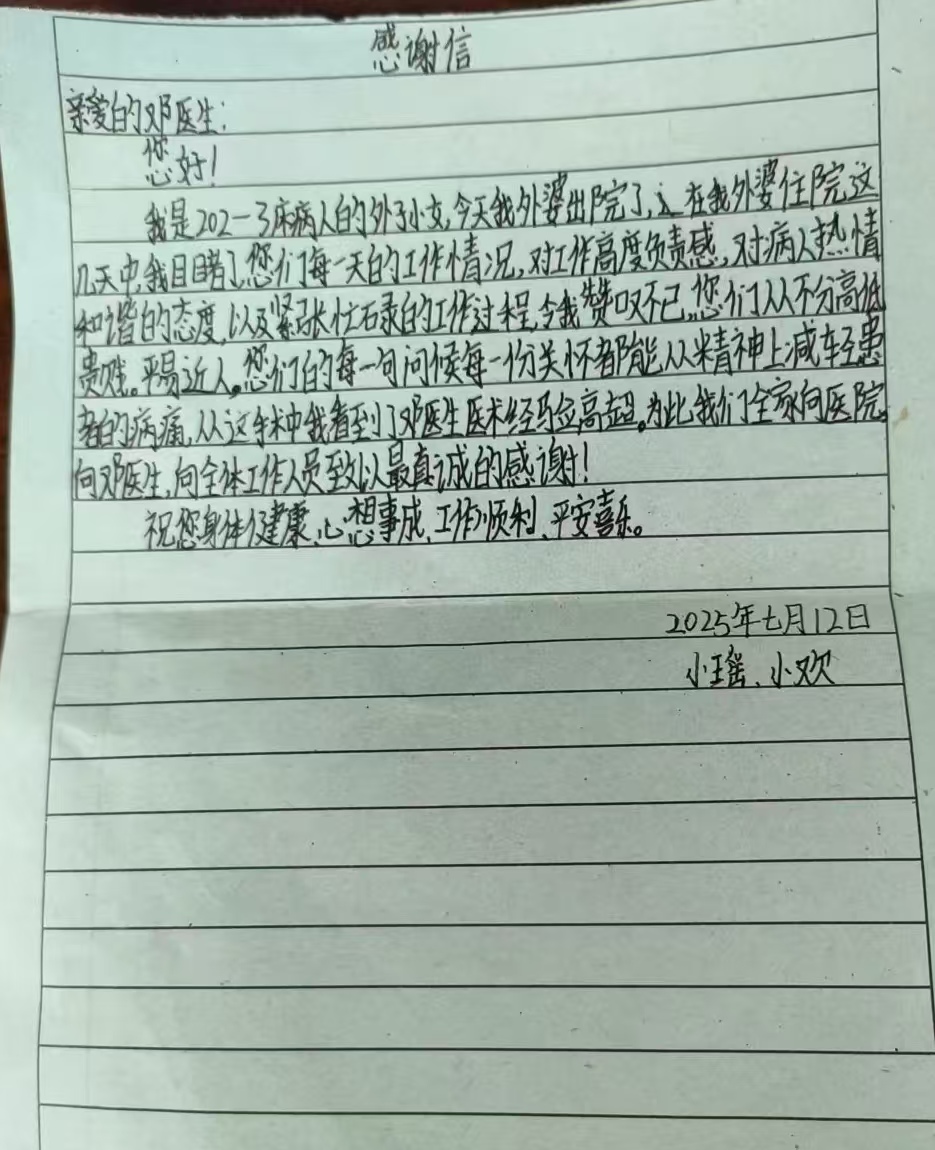 感谢信
亲爱的邓医生：
您好！
我是202-3床病人的外孙女，今天我外婆出院了，在我外婆住院这
几天中，我目睹了您们每一天的工作情况，对工作高度负责感，对病人热情
和谐的态度，以及紧张忙碌的工作过程，令我赞叹不已，您们从不分高低
贵贱。平易近人。您们的每一句问候每一份关怀都能从精神上减轻患
者的病痛，从这手术中我看到了邓医生医术经验高超。为此我们全家向医院，
向邓医生，向全体工作人员致以最真诚的感谢！
祝您身体健康、心想事成、工作顺利、平安喜乐。
2025年七月12日
小瑶、小欢